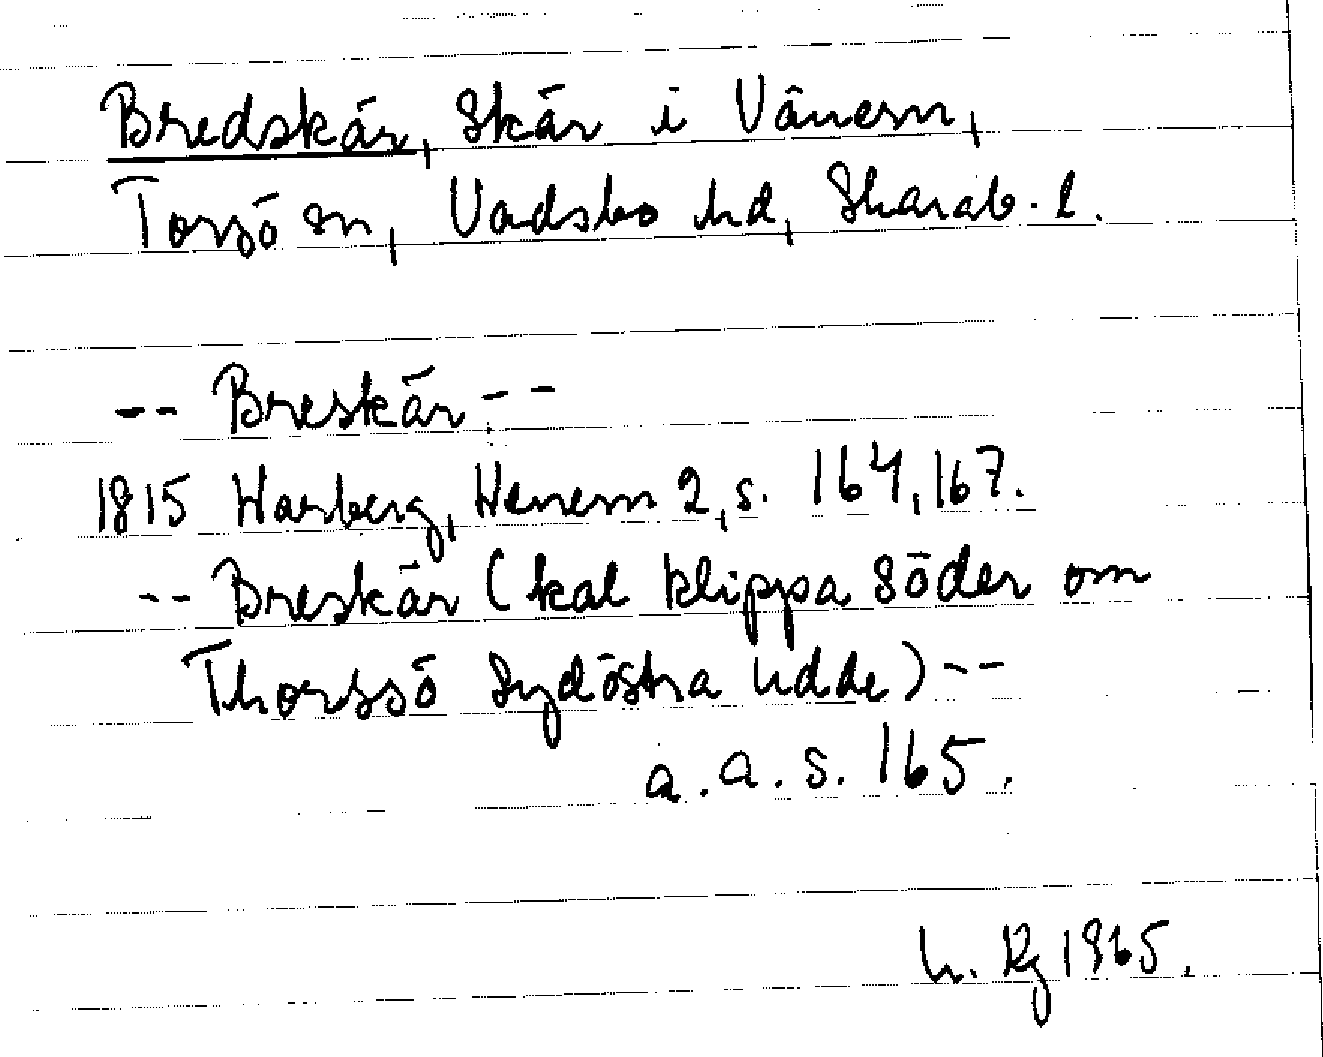 Bredskär, skär i Vänern,
Torsö sn, Vadsbo hd, Skarab. l.
-- Breskär --
1815 Warberg, Wenern 2, s. 164, 167.
-- Breskär (kal klippa söder om
Thorssö sydöstra udde) --
a.a.s. 165.
1965.